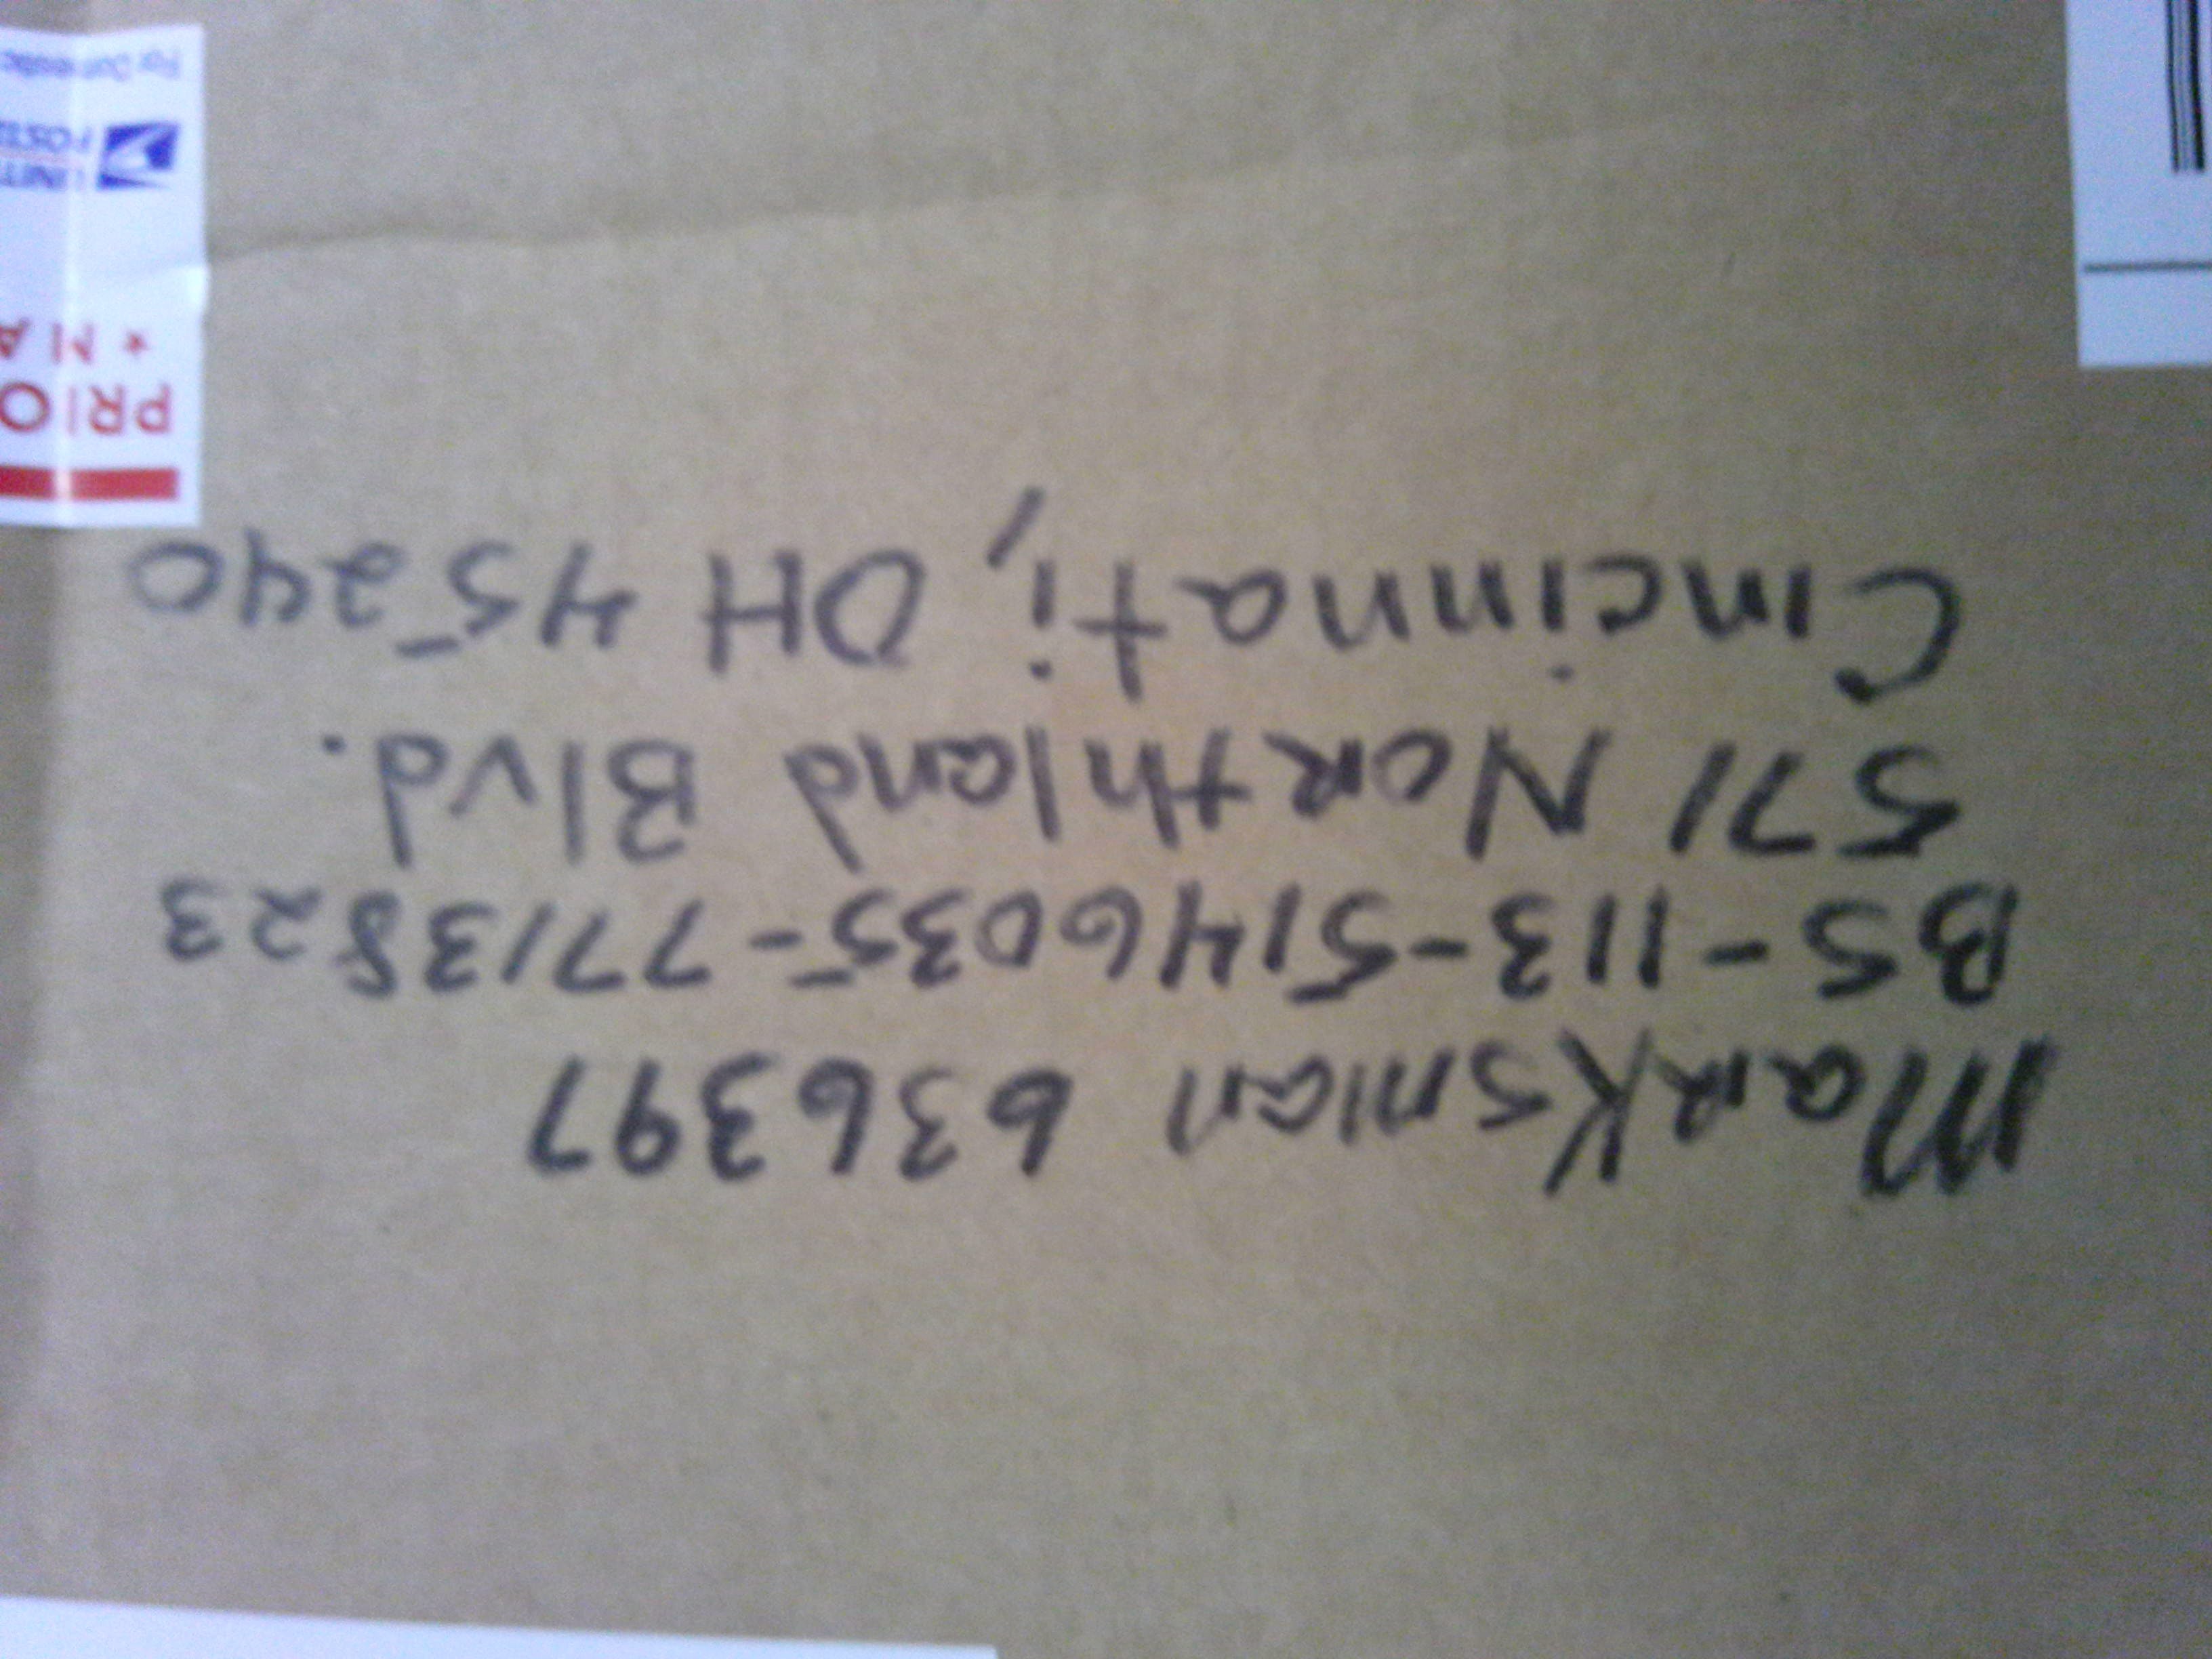 MarKsman 636397
BS-113-5146035-7713823
571 Northland Blvd.
Cincinnati, OH 45240
PRIO
★ MA
UNIT
POST
For Domestic